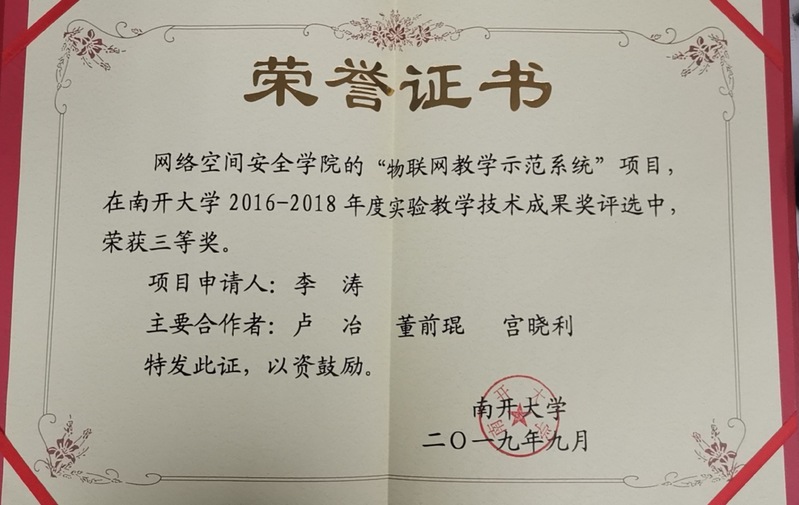 荣誉证书
网络空间安全学院的“物联网教学示范系统”项目，
在南开大学2016-2018年度实验教学技术成果奖评选中，
荣获三等奖。
项目申请人：李 涛
主要合作者：卢 冶 董前琨 宫晓利
特发此证，以资鼓励。
南开大学
南开大学
二〇一九年九月